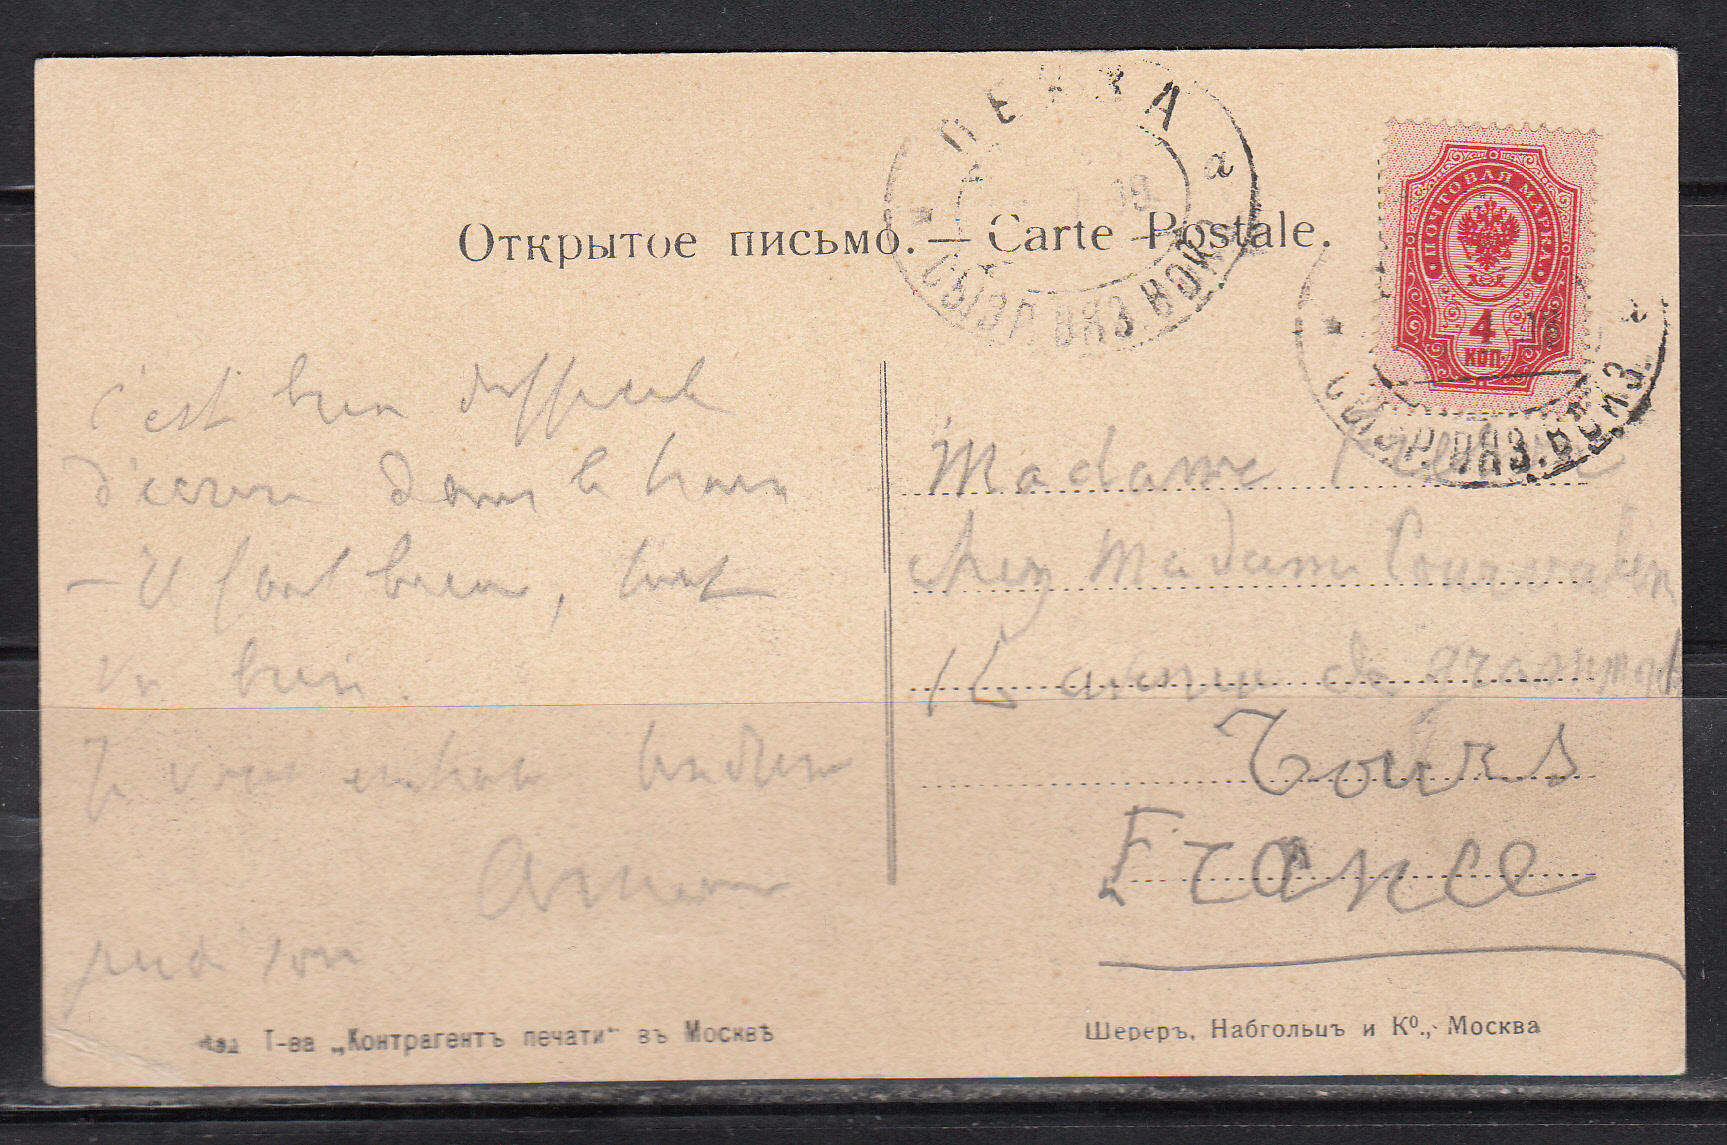 ПЕНЗА
а
Открытое письмо. — Carte Postale.
СЫЗР. ВЯЗ. ВОКЗ.
ПОЧТОВАЯ МАРКА
4
КОП.
а
СЫЗР. ВЯЗ. ВОКЗ.
c'est bien difficile
d'écrire dans le train
– Il fait beau, tout
va bien.
Je vous embrasse
jeudi soir
Madame
chez Madame
avenue de grammont
Tours
France
Изд. Т-ва „Контрагентъ печати“ въ Москвѣ
Шереръ, Набгольцъ и Кº., Москва